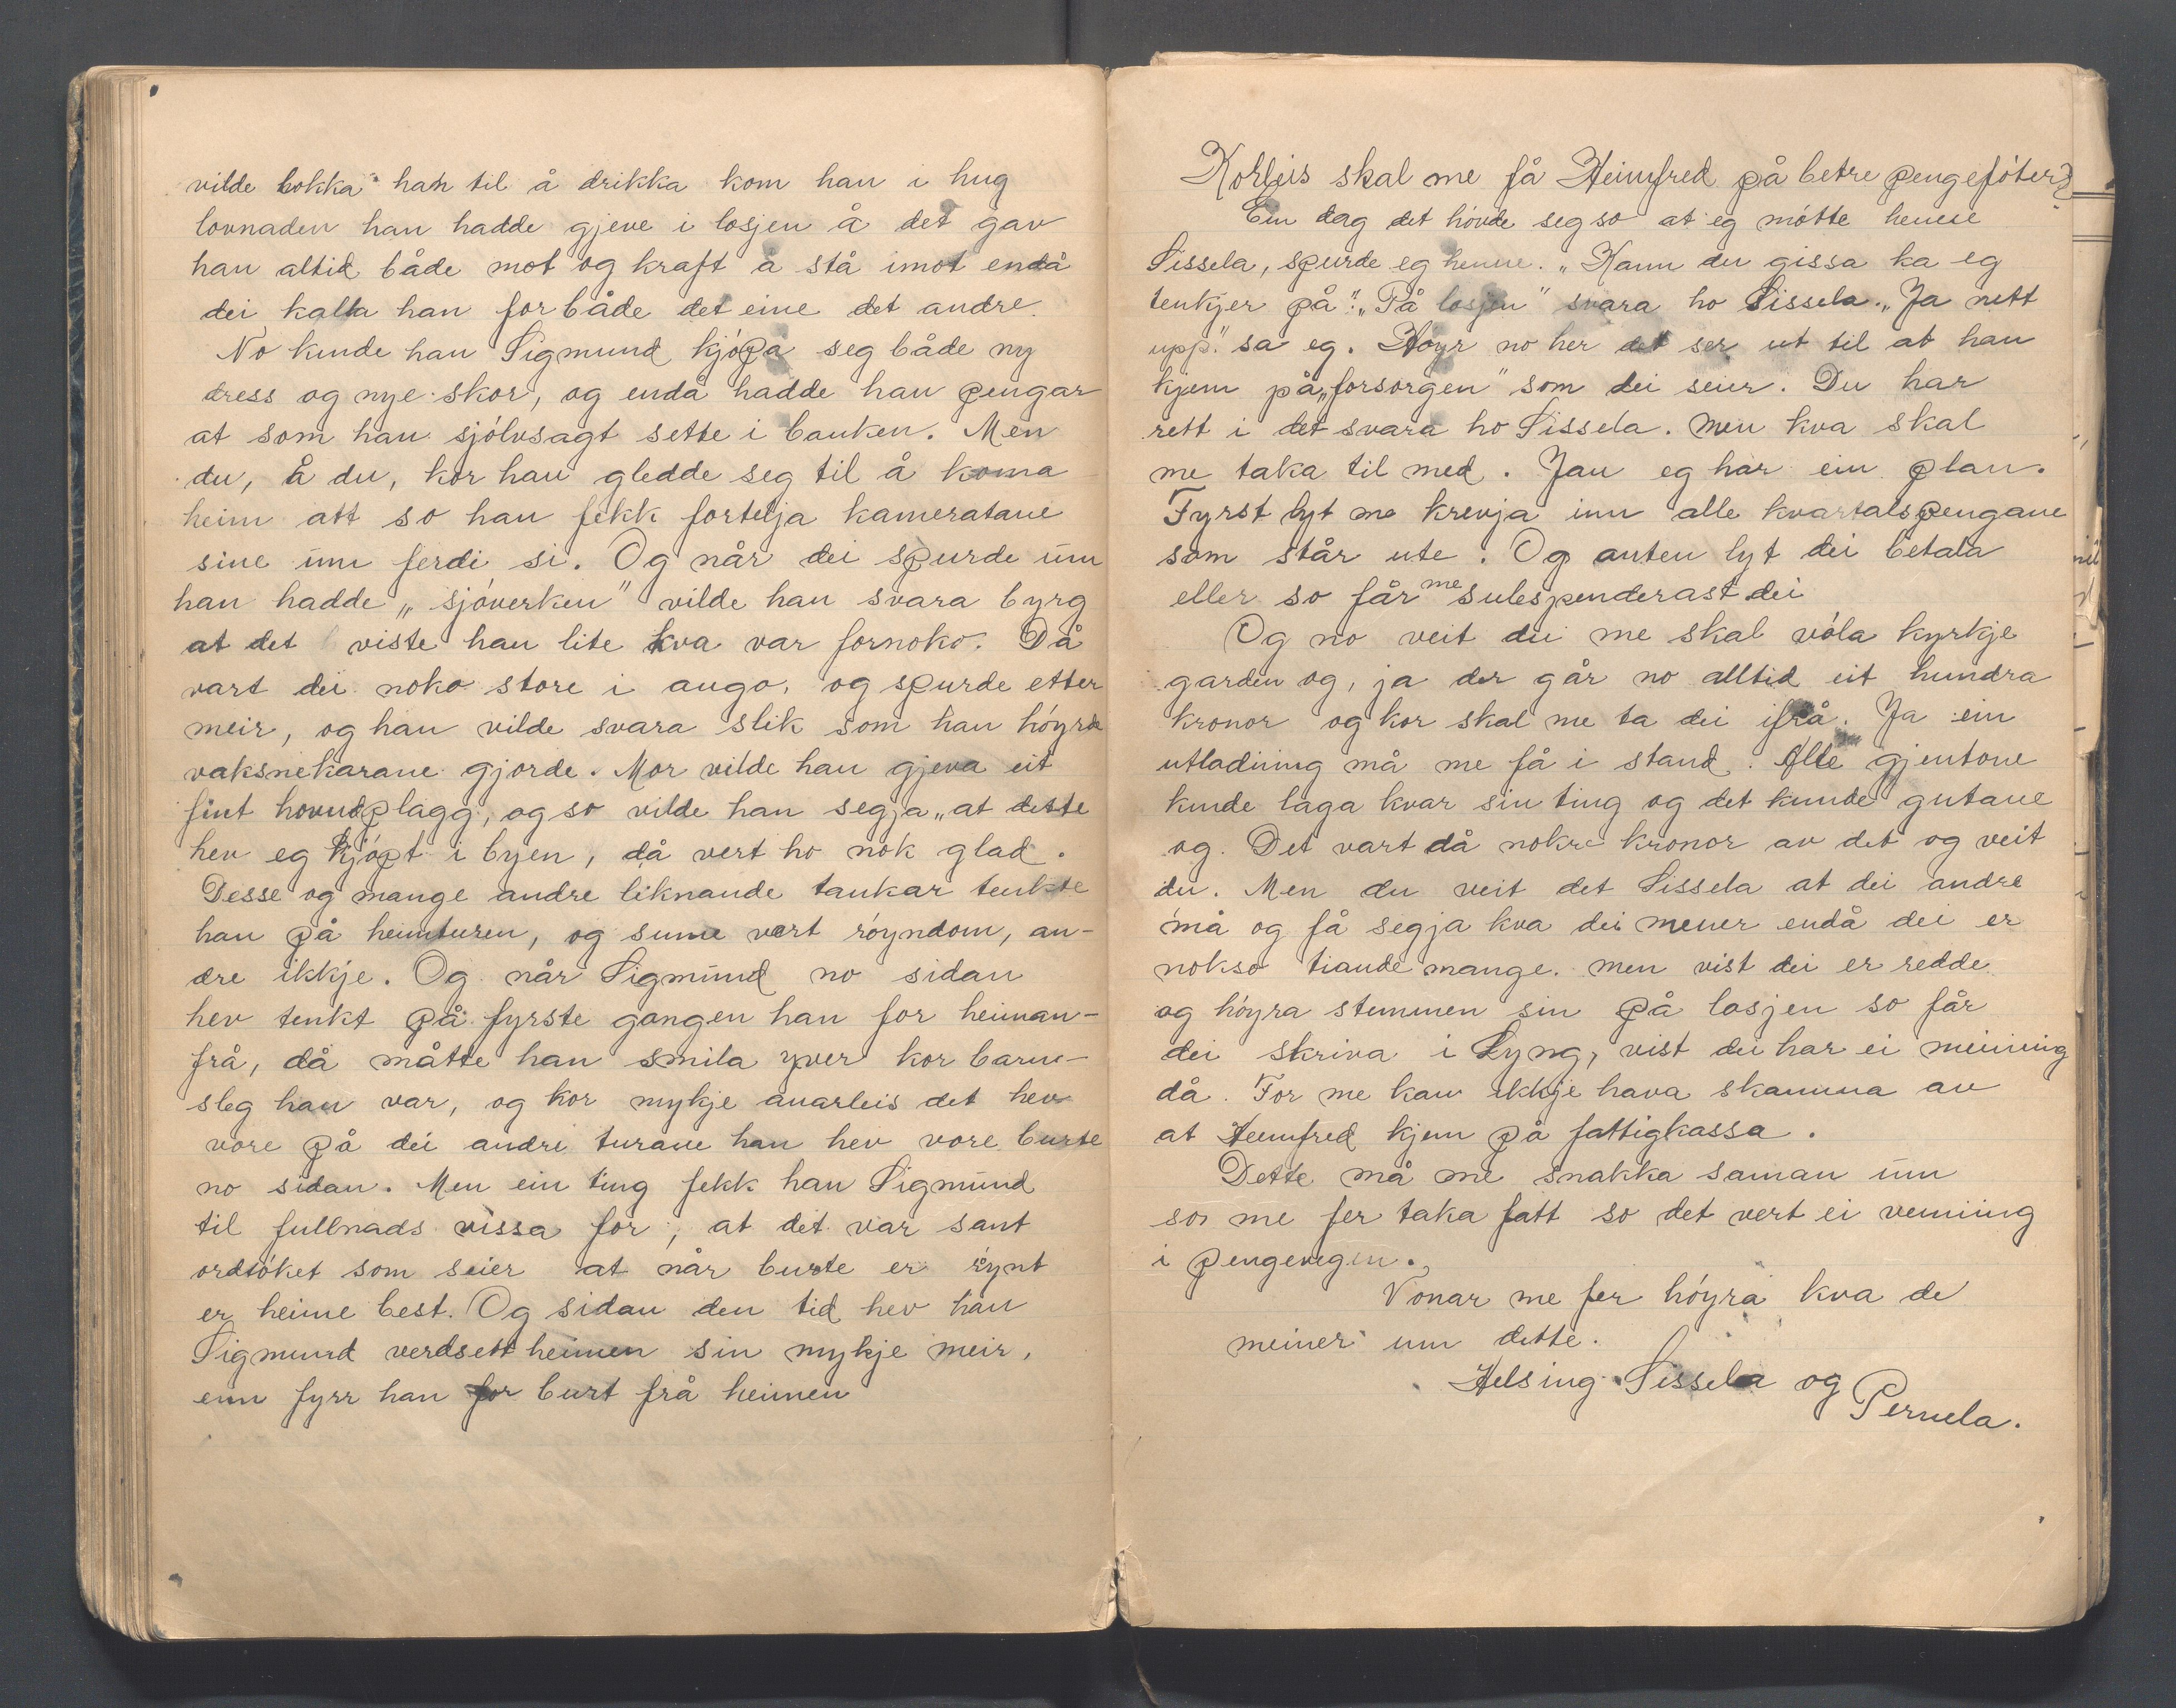 vilde lokka han til å drikka kom han i hug
lovnaden han hadde gjeve i losjen å det gav
han altid både mot og kraft å stå imot endå
dei kalla han for både det eine det andre.
No kunde han Sigmund kjópa seg både ny
dress og nye skor, og endå hadde han pengar
at som han sjólvsagt sette i banken. Men
du, å du, kor han gledde seg til å koma
heim att so han fekk fortelja kameratane
sine um ferdi si. Og når dei spurde um
han hadde „sjóverken" vilde han svara byrg
at det viste han lite kva var fornoko. Då
vart dei noko store i augo, og spurde etter
meir, og han vilde svara slik som han hóyrde
vaksnekarane gjorde. Mor vilde han gjeva eit
fint hovudplagg, og so vilde han segja „at dette
hev eg kjópt i byen, då vert ho nok glad.
Desse og mange andre liknande tankar tenkte
han på heimturen, og sume vart róyndom, an-
dre ikkje. Og når Sigmund no sidan
hev tenkt på fyrste gongen han for heiman-
frå, då måtte han smila yver kor barne-
sleg han var, og kor mykje anarleis det hev
vore på dei andre turane han hev vore burte
no sidan. Men ein ting fekk han Sigmund
til fullnads vissa for, at det var sant
ordtóket som seier at når burte er rýnt
er heime best. Og sidan den tid hev han
Sigmund verdsett heimen sin mykje meir,
enn fyrr han for burt frå heimen
Korleis skal me få Heimfred på betre pengefóter?
Ein dag det hóvde seg so at eg mótte henne
Sissela, spurde eg henne. „Kann du gissa ka eg
tenkjer på". „På losjen" svara ho Sissela. „Ja nett
upp." sa eg. Hóyr no her det ser ut til at han
kjem på „forsorgen" som dei seier. Du har
rett i det svara ho Sissela. Men kva skal
me taka til med. Jau eg har ein plan.
Fyrst lyt me krevja inn alle kvartalspengane
som står ute. Og anten lyt dei betala
eller so får me sulespenderast dei
Og no veit dei me skal vóla kyrkje
garden og, ja der går no alltid eit hundra
kronor og kor skal me ta dei ifrå. Ja ein
utlodning må me få i stand. Alle gjentone
kunde laga kvar sin ting og det kunde gutane
og. Det vart då nokre kronor av det og veit
du. Men du veit det Sissela at dei andre
må og få segja kva dei mener endå dei er
nokso tiande mange. Men vist dei er redde
og hóyra stemmen sin på losjen so får
dei skriva i Lyng, vist dei har ei meining
då. For me kan ikkje hava skamma av
at Heimfred kjem på fattigkassa.
Dette må me snakka saman um
so me fer taka fatt so det vert ei venning
i pengevegen.
Vonar me fer hóyra kva de
meiner um dette.
Helsing Sissela og
Pernela.